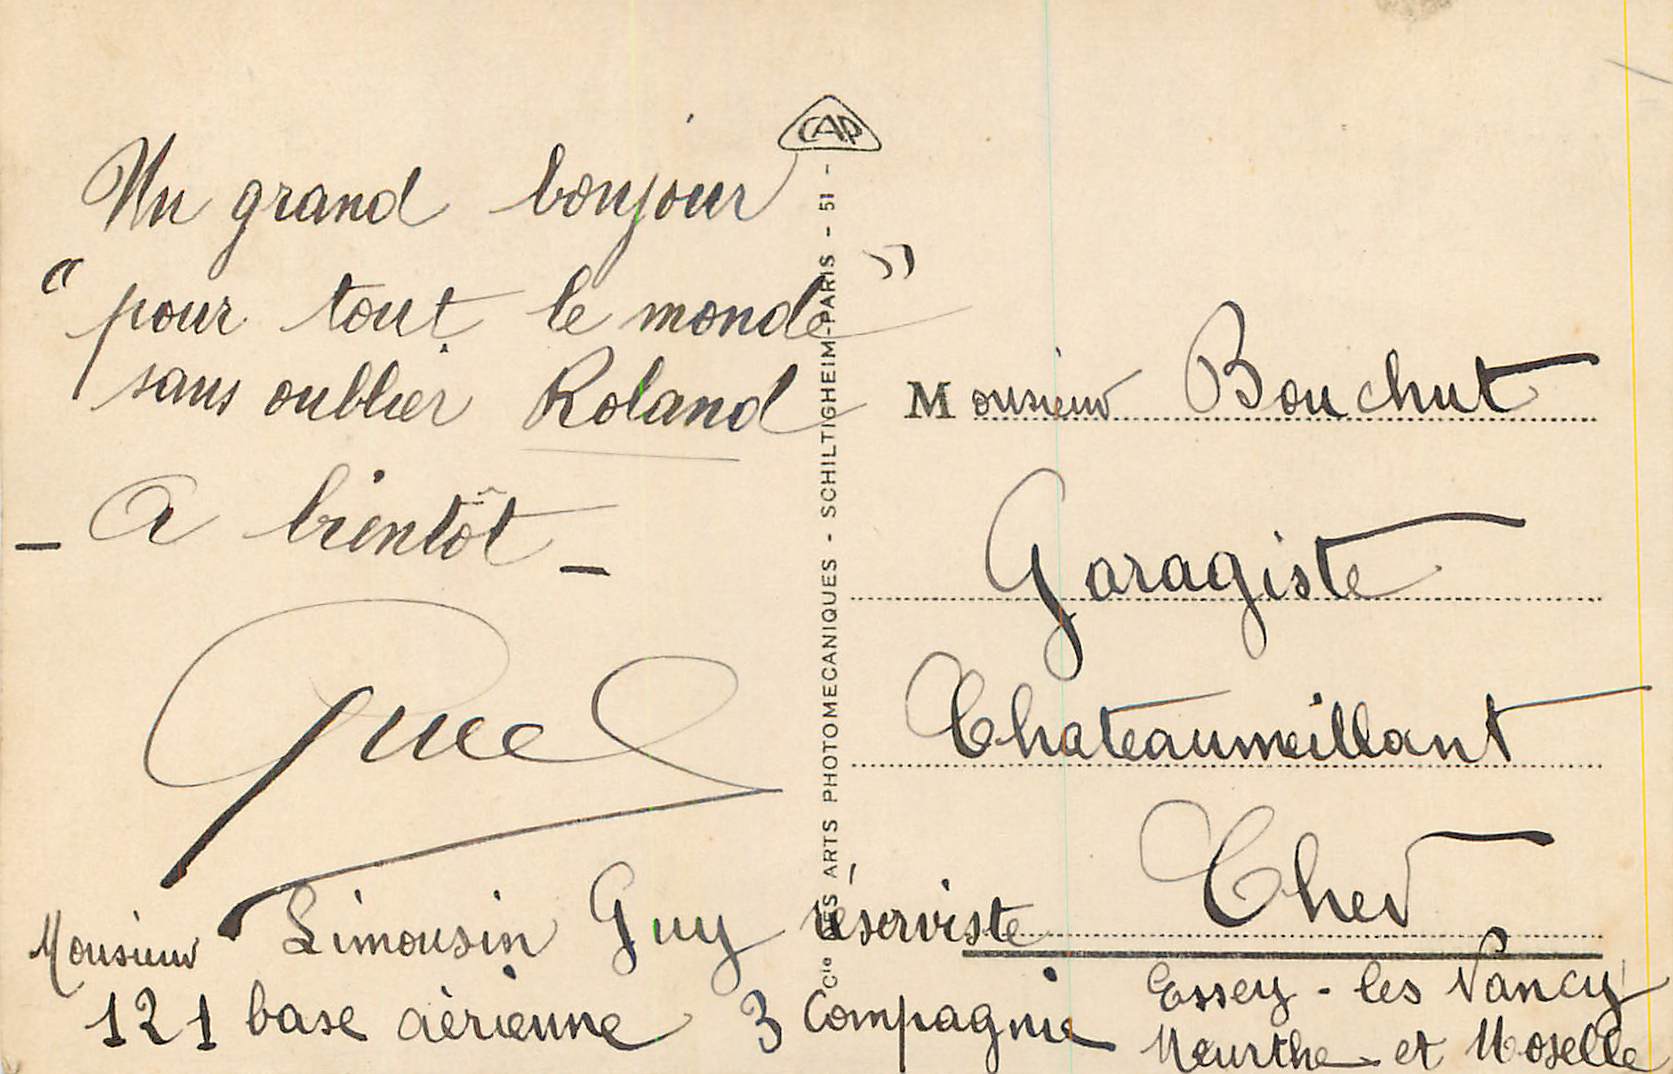 Un grand bonjour
"pour tout le monde"
sans oublier Roland
- A bientôt -
Monsieur Limousin Guy réserviste
121 base aérienne 3 Compagnie
Essey-les Nancy
Meurthe et Moselle
CAP
Cie DES ARTS PHOTOMECANIQUES - SCHILTIGHEIM-PARIS - 51 -
Monsieur Bouchut
Garagiste
Chateaumeillant
Cher